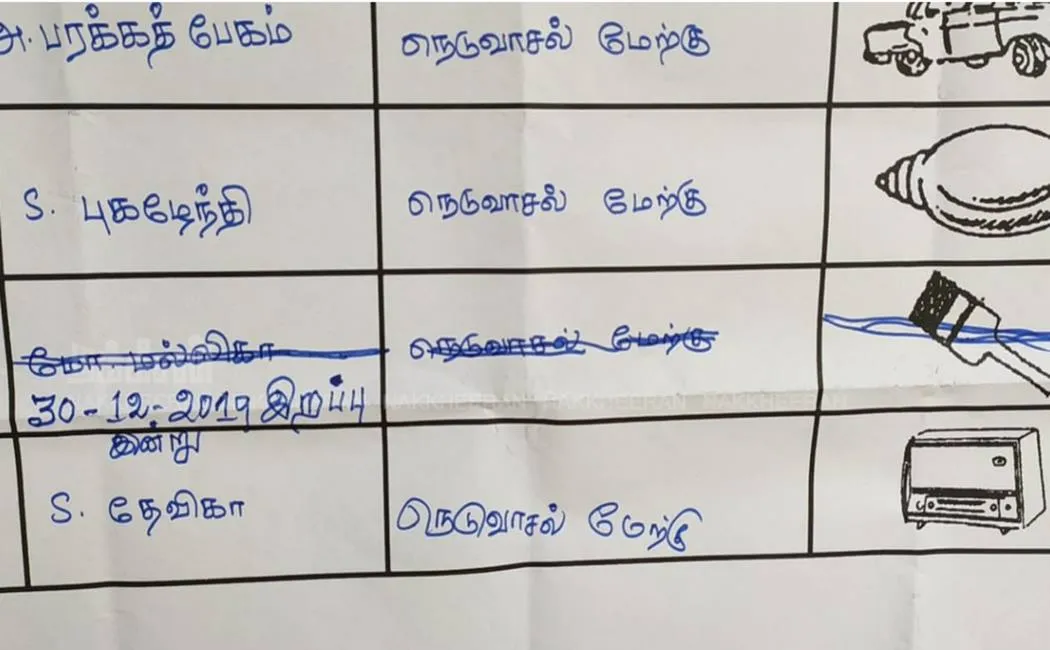 அ. பரக்கத் பேகம் நெடுவாசல் மேற்கு
S. புகழேந்தி நெடுவாசல் மேற்கு
மோ மல்லிகா நெடுவாசல் மேற்கு
30-12-2019 இறப்பு
இன்று
S. தேவிகா நெடுவாசல் மேற்கு
NAKKHEERAN NAKKHEERAN NAKKHEERAN